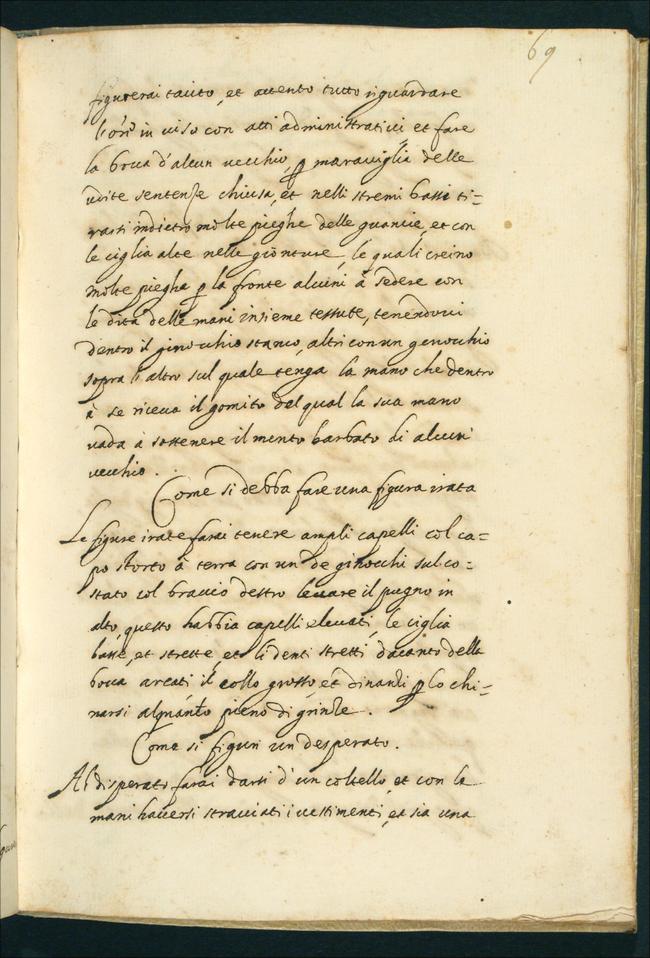 69
figurerai tacito, et attento tutto riguardare
l'or.e in viso con atti administrativi et fare
la bocca d'alcun vecchio, ꝑ maraviglia delle
udite sentenze chiusa, et nelli stremi bassi ti=
rarsi indietro molte pieghe delle guancie, et con
le ciglia alte nelle gionture, le quali creino
molte piegha ꝑ la fronte alcuni à sedere con
le dita delle mani insieme tessute, tenendovi
dentro il ginocchio stanco, altri con un genocchio
sopra l'altro sul quale tenga la mano che dentro
à se riceva il gomito del qual la sua mano
vada à sostenere il mento barbato di alcun
vecchio.
Come si debba fare una figura irata
Le figure irate farai tenere ampli capelli col ca=
po storto à terra con un de ginocchi sul co=
stato col braccio destro levare il pugno in
alto, questo habbia capelli elevati, le ciglia
basse, et strette, et li denti stretti dacanto della
bocca arcati, il collo grosso, et dinanzi ꝑ lo chi=
narsi alquanto pieno di grinze.
Come si figuri un desperato.
Al disperato farai darsi d'un coltello, et con la
mani haversi stracciati i vestimenti, et sia una